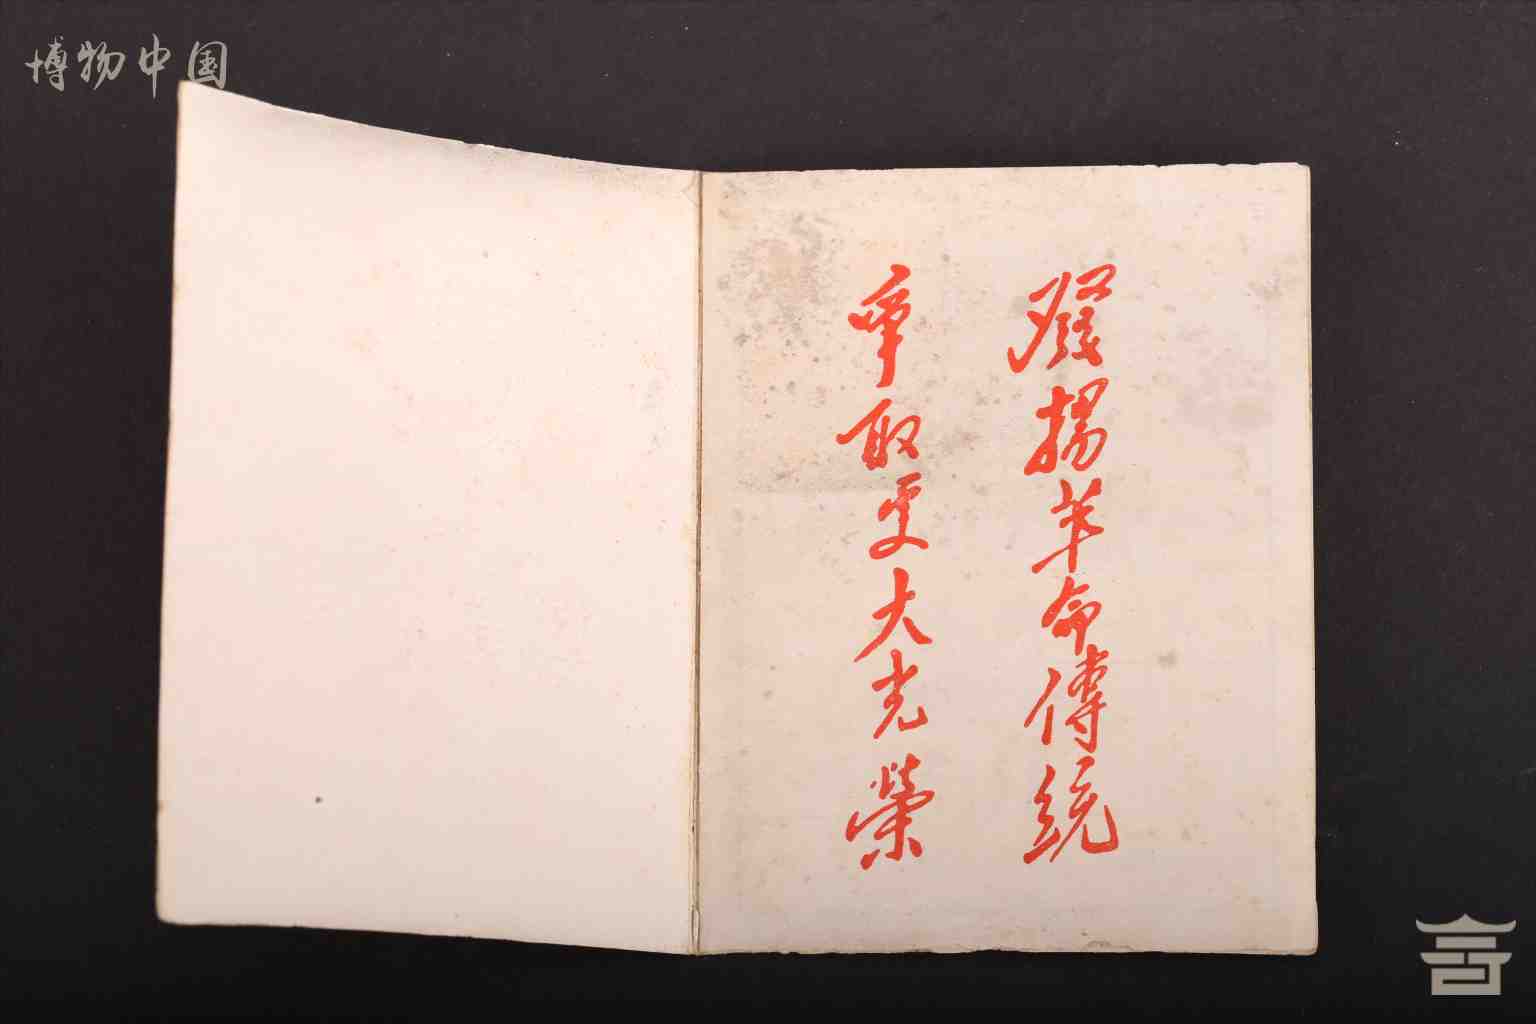 博物中国
發揚革命傳統
爭取更大光榮